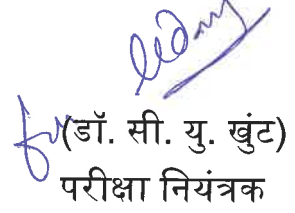 (डॉ. सी. यु. खुंट)
परीक्षा नियंत्रक